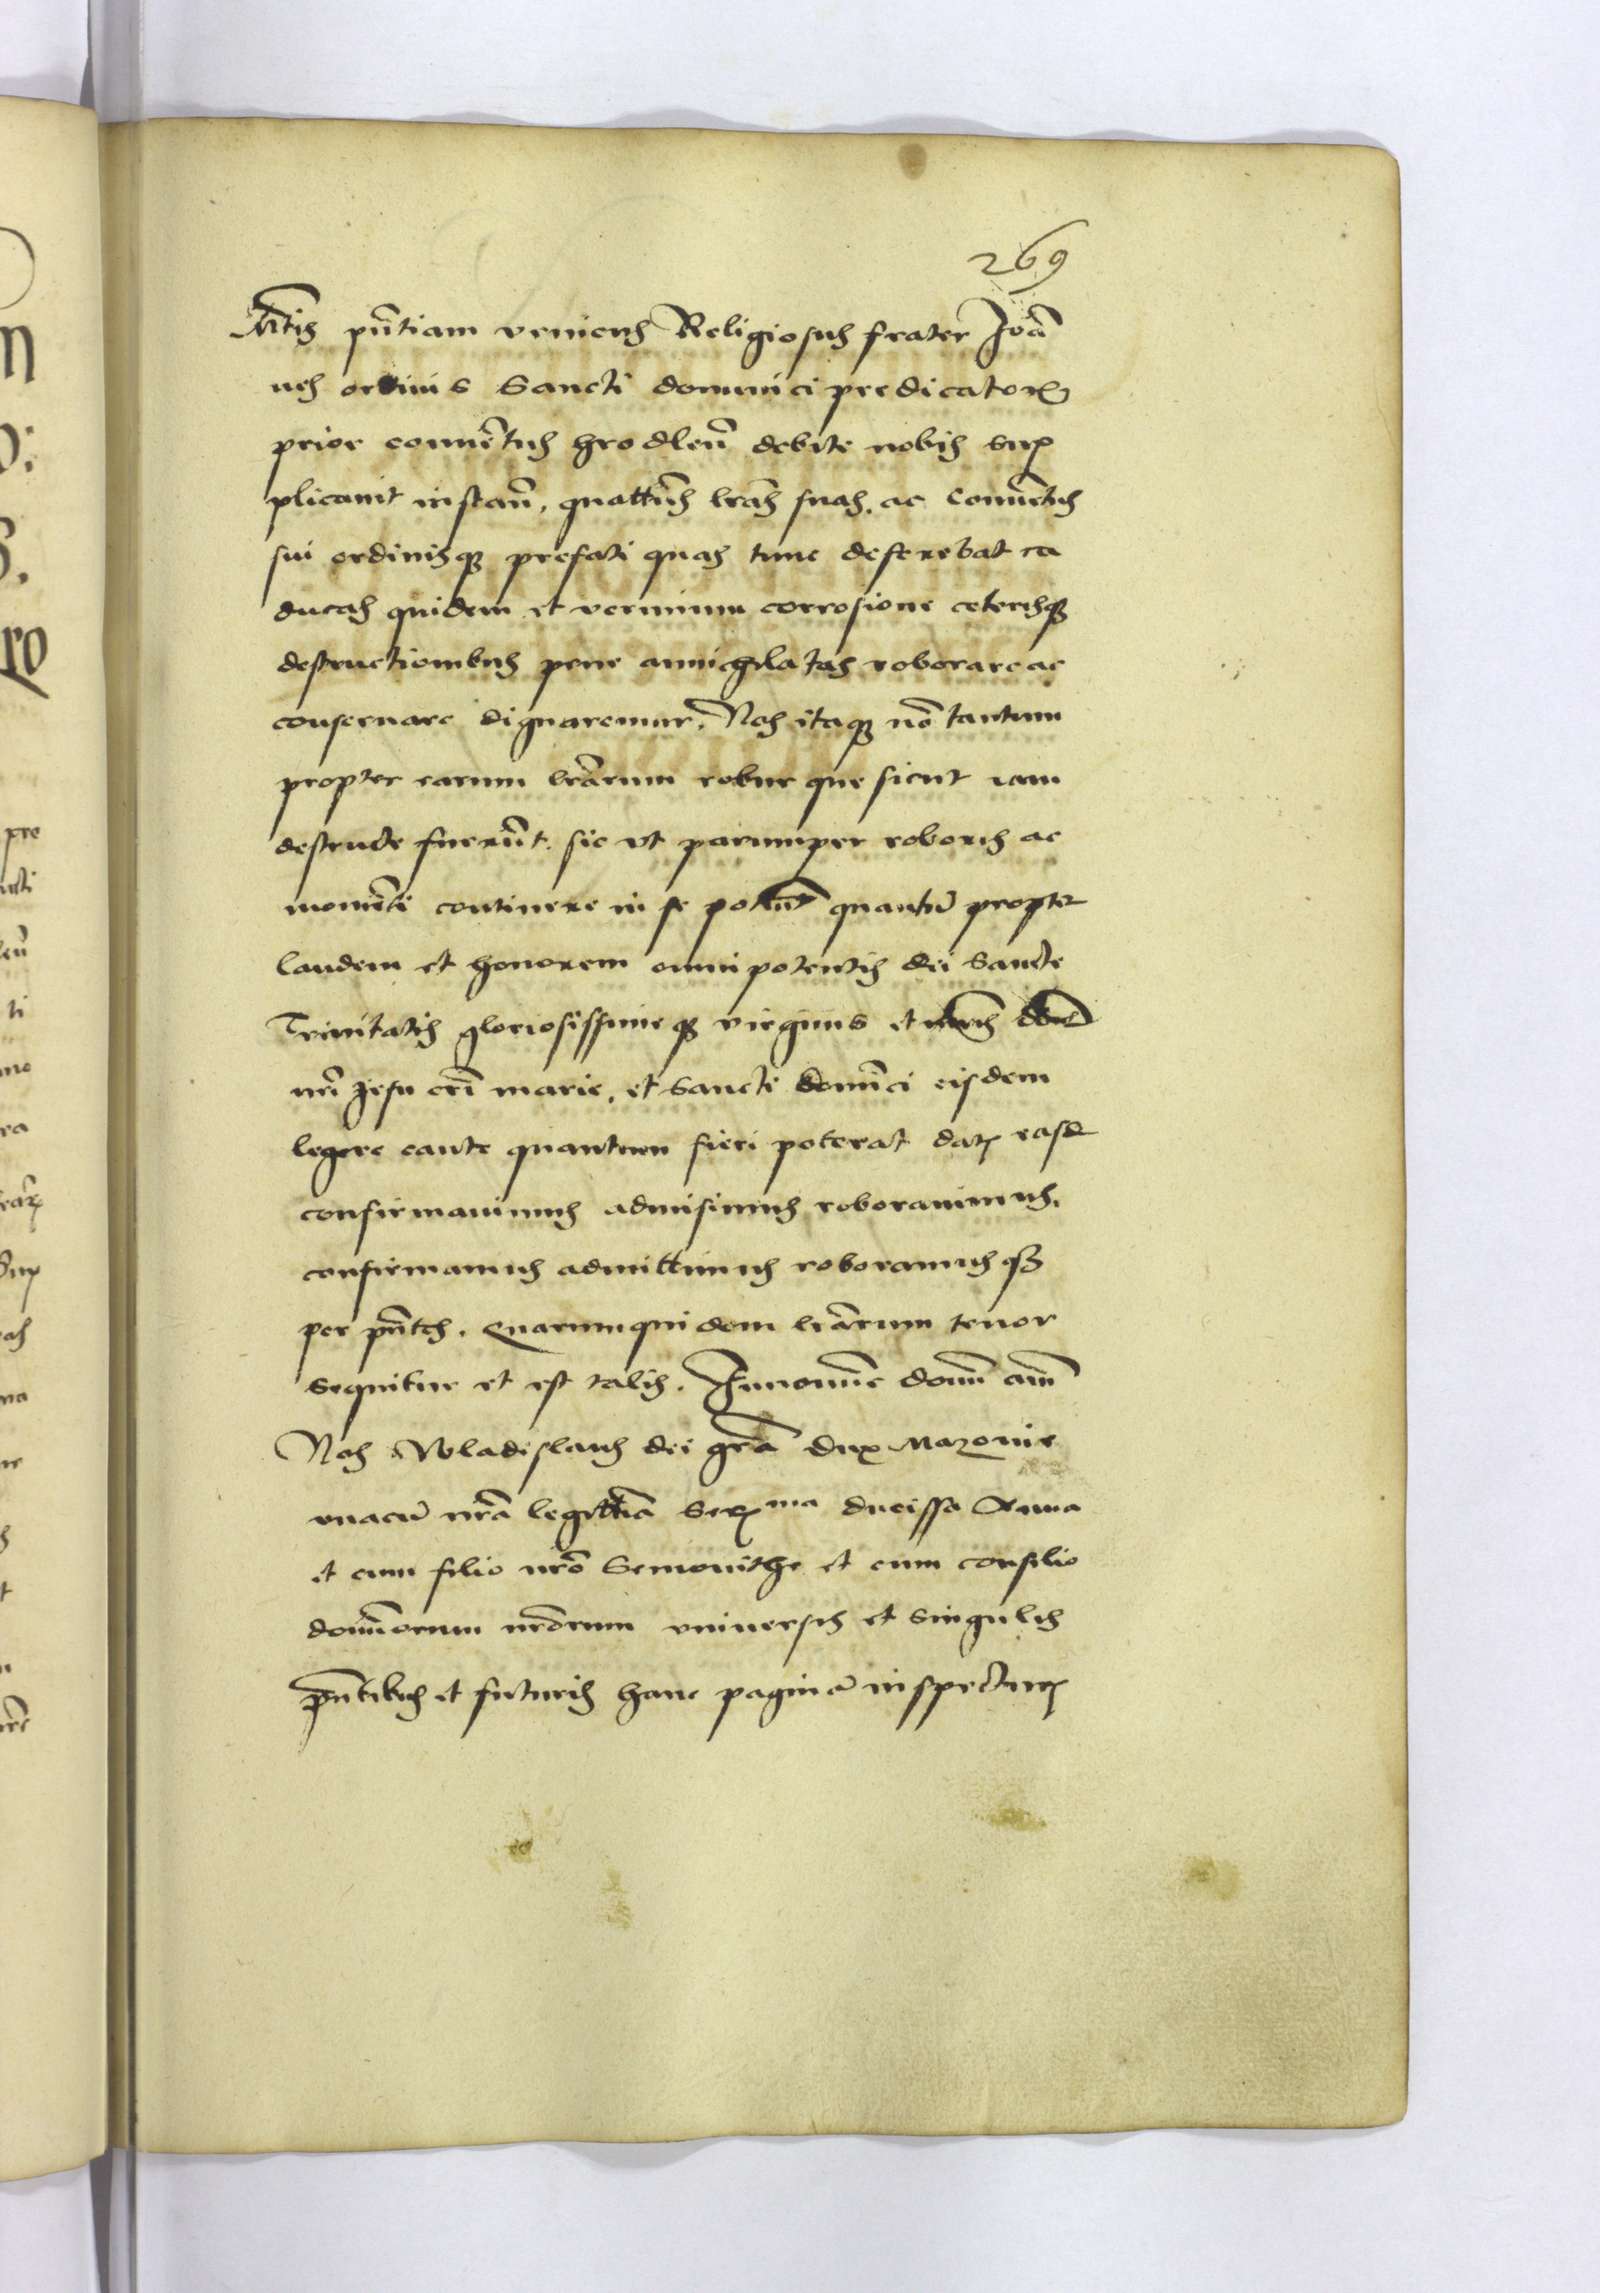 269
Mtis pñtiam veniens Religiosus frater Joã
nes ordinis Sancti dominici predicatorꝝ
prior conuẽtus hrodleñ debite nobis sup
plicauit instañ, quattin̄s lrãs suas, ac Conuẽtus
sui ordinisqꝫ prefati quas tunc deferebat ca
ducas quidem et vermium corrosione ceterisqꝫ
destructionibus pene annichilatas roborare ac
conseruare dignaremur, Nos itaqꝫ nõ tantum
propter earum lrãrum robur que sicut iam
destructe fuerũt. sic vt parumper roboris ac
momẽti continere in se poterũt quantũ propter
laudem et honorem omnipotentis dei Sancte
Trinitatis gloriosissime qꝫ virginis et mr̃is dñi
nri Jesu crĩ marie, et Sancti domĩci eisdem
legere caute quantum fieri poterat datꝭ easd
confirmauimus admisimus roborauimus,
confirmamus admittimus roboramus qꝫ
per pñtes. Quarumquidem lrãrum tenor
sequitur et est talis. Innomĩe domĩ amẽ
Nos Wladislaus dei grã dux Mazouie
vnacũ nrã legittĩa Serma ducissa Anna
et cum filio nrõ Semouithe et cum consilio
domĩorum nrõrum vniuersis et Singulis
pñtibus et futuris hanc paginã inspecturꝭ